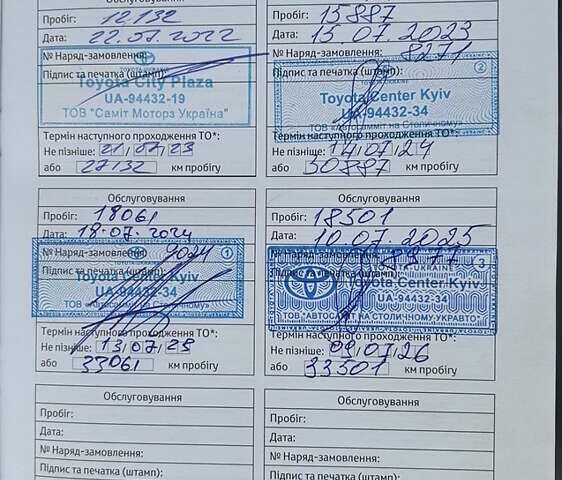 Обслуговування
Пробіг: 12.132
Дата: 22.07.2022
№ Наряд-замовлення:
Підпис та печатка (штамп):
TOYOTA UKRAINE
Toyota City Plaza
UA-94432-19
ТОВ "Саміт Мотора Україна"
Термін наступного проходження ТО*:
Не пізніше: 21/07/23
або 27132 км пробігу
Пробіг: 15887
Дата: 15 07.2023
№ Наряд-замовлення: 8271
Підпис та печатка (штамп):
2
Toyota Center Kyiv
UA-94432-34
ТОВ «Автосаміт на Столичному»
Термін наступного проходження ТО*:
Не пізніше: 14/07/24
або 30887 км пробігу
Обслуговування
Пробіг: 18061
Дата: 18.07.2024
№ Наряд-замовлення: 9024
Підпис та печатка (штамп):
1
Toyota Center Kyiv
UA-94432-34
ТОВ «Автосаміт на Столичному»
Термін наступного проходження ТО*:
Не пізніше: 13/07/25
або 33061 км пробігу
Обслуговування
Пробіг: 18501
Дата: 10.07.2025
№ Наряд-замовлення: 8977
Підпис та печатка (штамп):
TOYOTA-UKRAINE
3
Toyota Center Kyiv
UA-94432-34
ТОВ "АВТОСАМІТ НА СТОЛИЧНОМУ УКРАВТО"
Термін наступного проходження ТО*:
Не пізніше: 09/07/26
або 33501 км пробігу
Обслуговування
Пробіг:
Дата:
№ Наряд-замовлення:
Підпис та печатка (штамп):
Обслуговування
Пробіг:
Дата:
№ Наряд-замовлення:
Підпис та печатка (штамп):